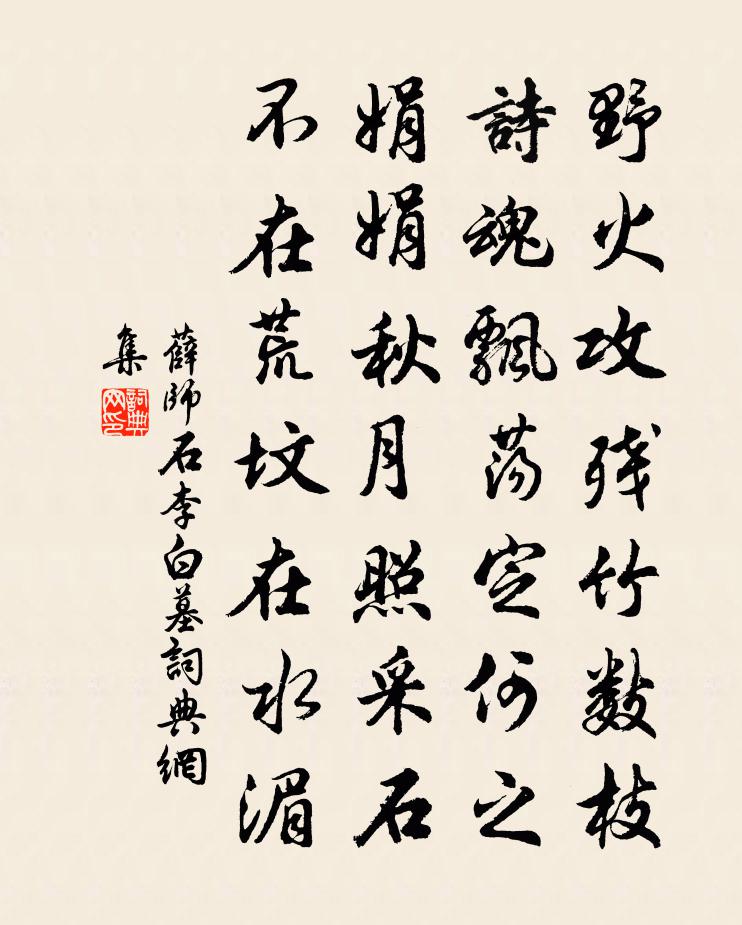 野火攻残竹數枝
詩魂飄荡定何之
娟娟秋月照采石
不在荒坟在水湄
薛師石李白墓詞典網
集
詞典
网印